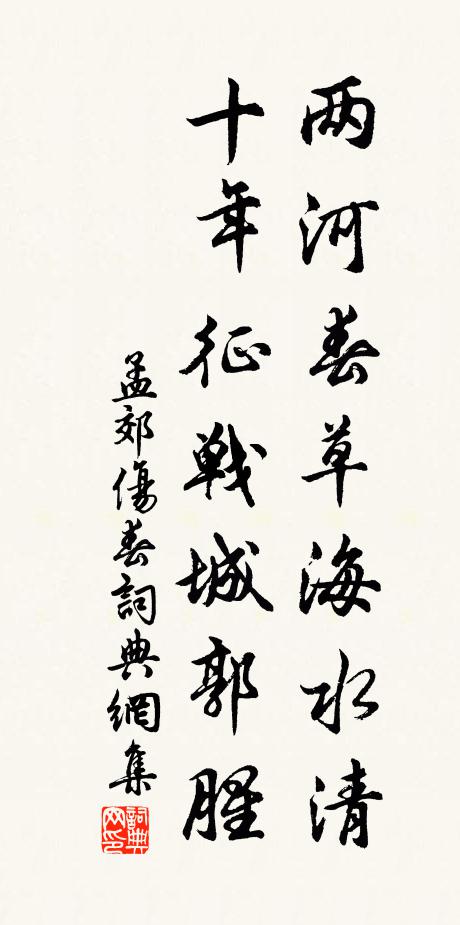 两河春草海水清
十年征戰城郭腥
孟郊傷春詞典網集
詞典网印